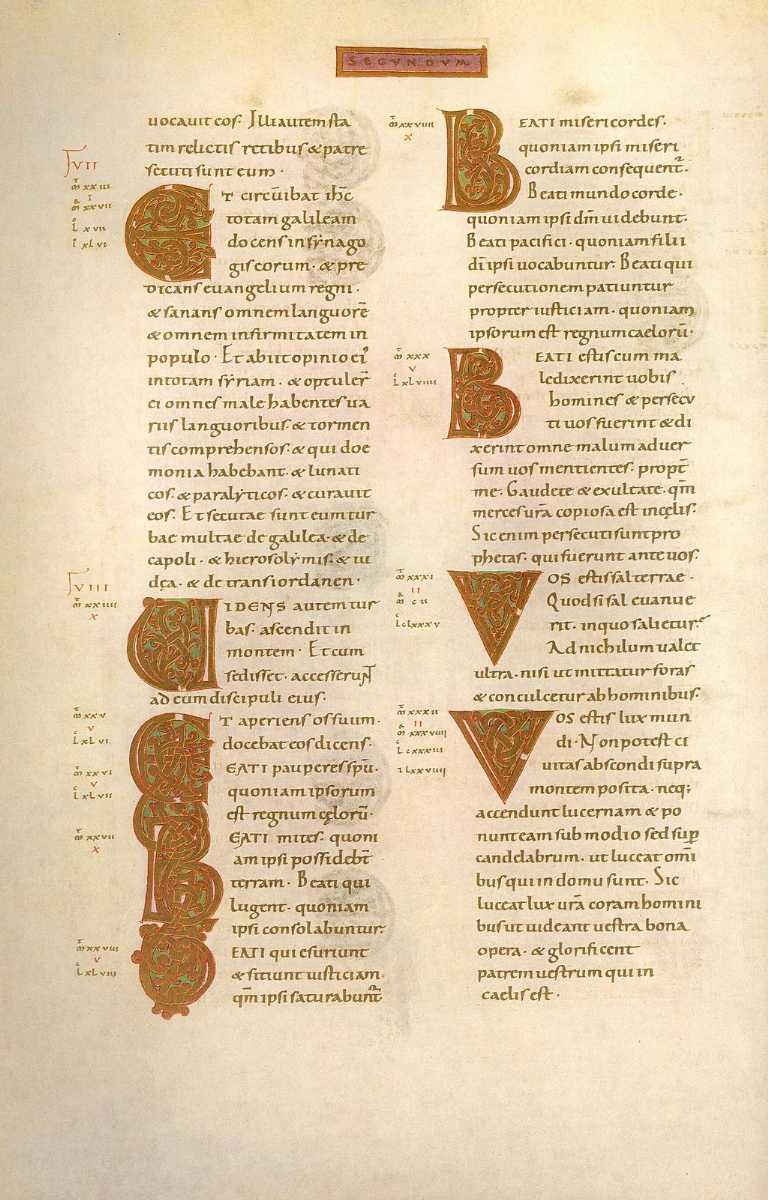 SECUNDUM
uocauit eos. Illi autem sta
tim relictis retibus & patre
secuti sunt eum.
VII
ET circūibat ihc̄
totam galileam
docens in synago
gis eorum. & pre
dicans euangelium regni.
& sanans omnem languorē
& omnem infirmitatem in
populo. Et abiit opinio ei'
in totam syriam. & optuler̄
ei omnes male habentes ua
riis languoribus & tormen
tis comprehensos. & qui doe
monia habebant. & lunati
cos. & paralyticos. & curauit
eos. Et secutae sunt eum tur
bae multae de galilea. & de
capoli. & hierosolymis. & iu
dęa. & de trans iordanen.
VIII
UIDENS autem tur
bas. ascendit in
montem. Et cum
sedisset. accesserunt
ad eum discipuli eius.
ET aperiens os suum.
docebat eos dicens.
BEATI pauperes spū.
quoniam ipsorum
est regnum cęlorū.
BEATI mites. quoni
am ipsi possidebt̄
terram. Beati qui
lugent. quoniam
ipsi consolabuntur.
BEATI qui esuriunt
& sitiunt iusticiam.
qm̄ ipsi saturabunt᷑
BEATI misericordes.
quoniam ipsi miseri
cordiam consequent᷑.
Beati mundo corde.
quoniam ipsi dm̄ uidebunt.
Beati pacifici. quoniam filii
dī ipsi uocabuntur. Beati qui
persecutionem patiuntur
propter iusticiam. quoniam
ipsorum est regnum caelorū.
BEATI estis cum ma
ledixerint uobis
homines & persecu
ti uos fuerint & di
xerint omne malum aduer
sum uos mentientes. propt̄
me. Gaudete & exultate. qm̄
merces urā copiosa est in cęlis.
Sic enim persecuti sunt pro
phetas. qui fuerunt ante uos.
VOS estis sal terrae.
Quod si sal euanue
rit. in quo salietur.
Ad nichilum ualet
ultra. nisi ut mittatur foras
& conculcetur ab hominibus.
VOS estis lux mun
di. Non potest ci
uitas abscondi supra
montem posita. neq;
accendunt lucernam & po
nunt eam sub modio sed sup̄
candelabrum. ut luceat omī
bus qui in domu sunt. Sic
luceat lux urā coram homini
bus ut uideant uestra bona
opera. & glorificent
patrem uestrum qui in
caelis est.